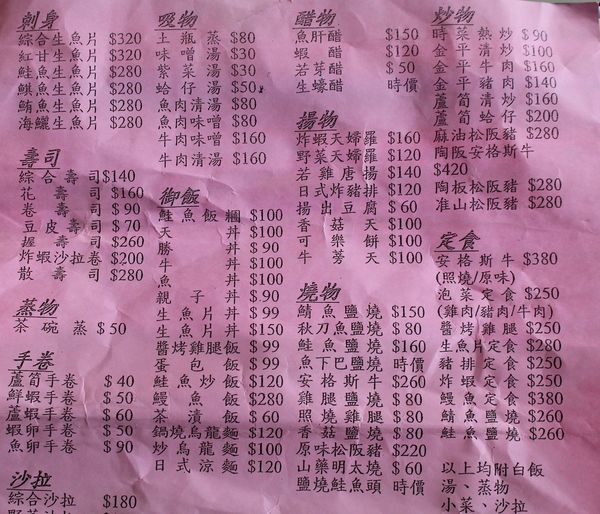 刺身
綜合生魚片 $320
紅甘生魚片 $320
鮭魚生魚片 $280
鯕魚生魚片 $280
鮪魚生魚片 $280
海鱺生魚片 $280
壽司
綜合壽司 $140
花壽司 $160
卷壽司 $90
豆皮壽司 $70
握壽司 $260
炸蝦沙拉卷 $200
散壽司 $280
蒸物
茶碗蒸 $50
手卷
蘆筍手卷 $40
鮮蝦手卷 $50
蘆蝦手卷 $60
蝦卵手卷 $50
魚卵手卷 $90
沙拉
綜合沙拉 $180
吸物
土瓶蒸 $80
味噌湯 $30
紫菜湯 $30
蛤仔湯 $50
魚肉清湯 $80
魚肉味噌 $80
牛肉味噌 $160
牛肉清湯 $160
御飯
鮭魚飯糰 $100
天丼 $100
勝丼 $90
牛丼 $100
魚丼 $100
親子丼 $90
生魚片丼 $99
生魚片丼 $150
醬烤雞腿飯 $99
蛋包飯 $99
鮭魚炒飯 $120
鰻魚飯 $280
茶漬飯 $60
鍋燒烏龍麵 $120
炒烏龍麵 $100
日式涼麵 $120
醋物
魚肝醋 $150
蝦醋 $120
若芽醋 $50
生蠔醋 時價
揚物
炸蝦天婦羅 $160
野菜天婦羅 $120
若雞唐揚 $140
日式炸豬排 $120
揚出豆腐 $60
香菇天 $100
可樂餅 $100
牛蒡天 $100
燒物
鯖魚鹽燒 $150
秋刀魚鹽燒 $80
鮭魚鹽燒 $160
魚下巴鹽燒 時價
安格斯牛 $260
雞腿鹽燒 $80
照燒雞腿 $80
香菇鹽燒 $80
原味松阪豬 $220
山藥明太燒 $60
鹽燒鮭魚頭 時價
炒物
時菜熱炒 $90
金平清炒 $100
金平牛肉 $160
金平豬肉 $140
蘆筍清炒 $160
蘆筍蛤仔 $200
麻油松阪豬 $280
陶阪安格斯牛
$420
陶板松阪豬 $280
准山松阪豬 $280
定食
安格斯牛 $380
(照燒/原味)
泡菜定食 $250
(雞肉/豬肉/牛肉)
醬烤雞腿 $250
生魚片定食 $280
豬排定食 $250
炸蝦定食 $250
鰻魚定食 $380
鯖魚鹽燒 $260
鮭魚鹽燒 $260
以上均附白飯
湯、蒸物
小菜、沙拉